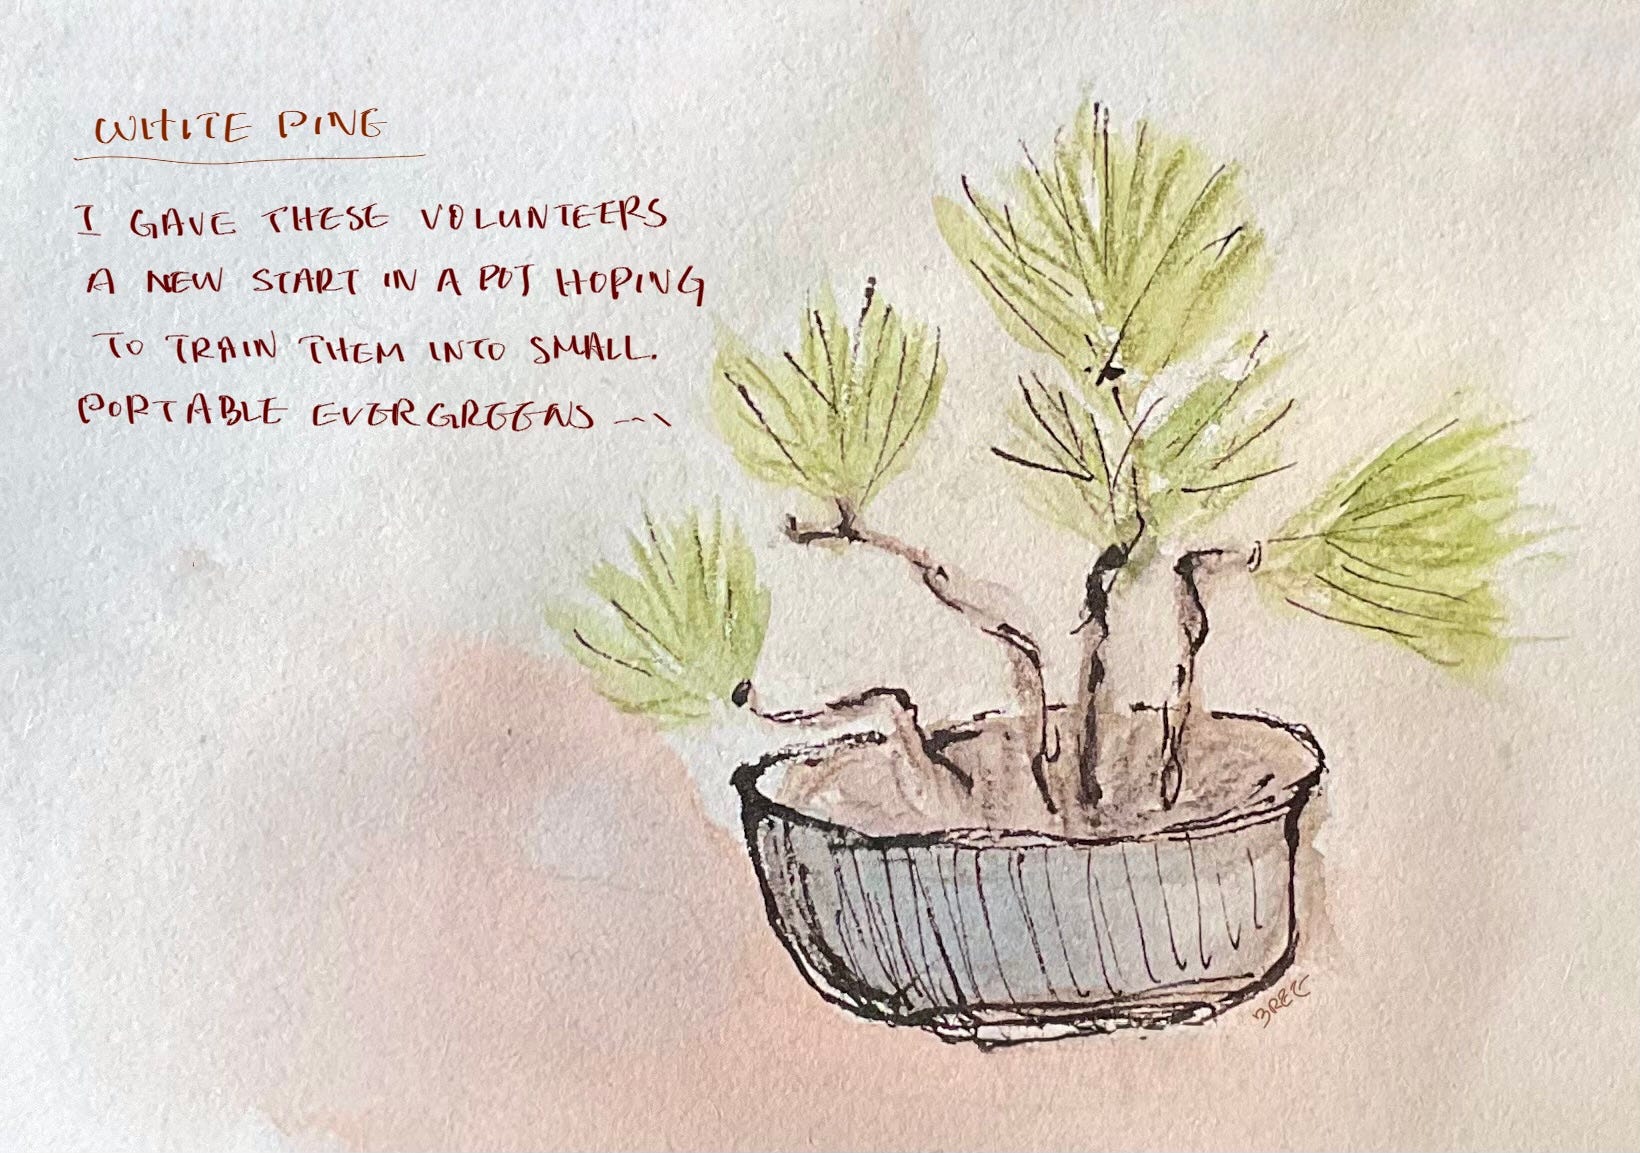 WHITE PINE
I GAVE THESE VOLUNTEERS
A NEW START IN A POT HOPING
TO TRAIN THEM INTO SMALL.
PORTABLE EVERGREENS ---